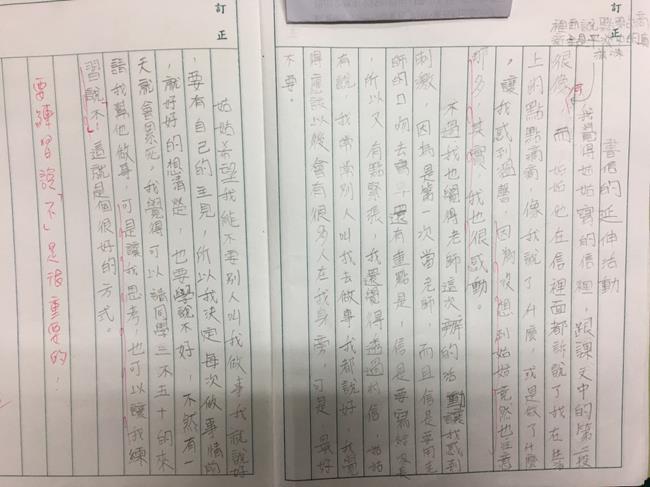 訂正
書信的延伸活動
我覺得姑姑寫的信裡,跟課文中的第二段
很像,而姑姑也在信裡面都訴說了我在生活
上的點點滴滴,像我說了什麼,或是做了什麼
,讓我感到溫馨,因為沒想到姑姑竟然也注意
那多,其實,我也很感動。
不過我也覺得老師這次辦的活動讓我感到
刺激,因為是第一次當老師,而且信是要用老
師的口吻去寫,還有重點是,信是要寫給家長
,所以又有點緊張,我還覺得透過的信,姑姑
有說,我常常別人叫我去做事,我都說好,我覺
得應該以後會有很多人在我身旁,可是,最好
不要。
訂正
姑姑希望我能不要別人叫我做事我就說好
,要有自己的主見,所以我決定每次做事情的
,就好好的想清楚,也要學說不好,不然有一
天就會累死,我覺得可以請同學三不五十的來
請我幫他做事,可是讓我思考,也可以讓我練
習說不,這就是個很好的方式。
要練習說「不」是很重要的!